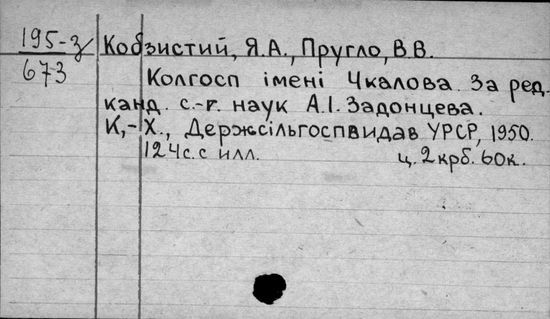 195-з
673
Кобзистий, Я.А., Пругло, В.В.
Колгосп імені Чкалова. За ред.
канд. с.-г. наук А.І. Задонцева.
К,-Х., Держсільгоспвидав УРСР, 1950.
124с. с илл. ц. 2крб. 60к.